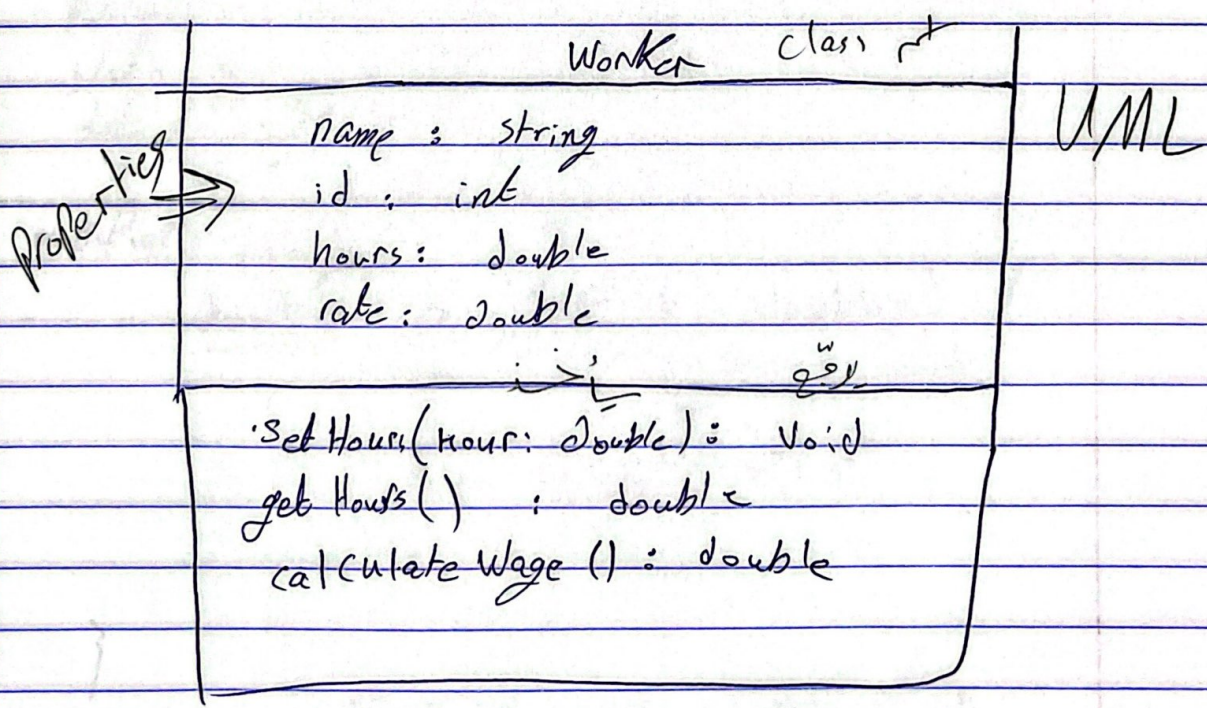 Worker Class
UML
name : string
properties
id : int
hours : double
rate : double
يأخذ
setHours(Hour: double) : void
getHours() : double
calculateWage() : double